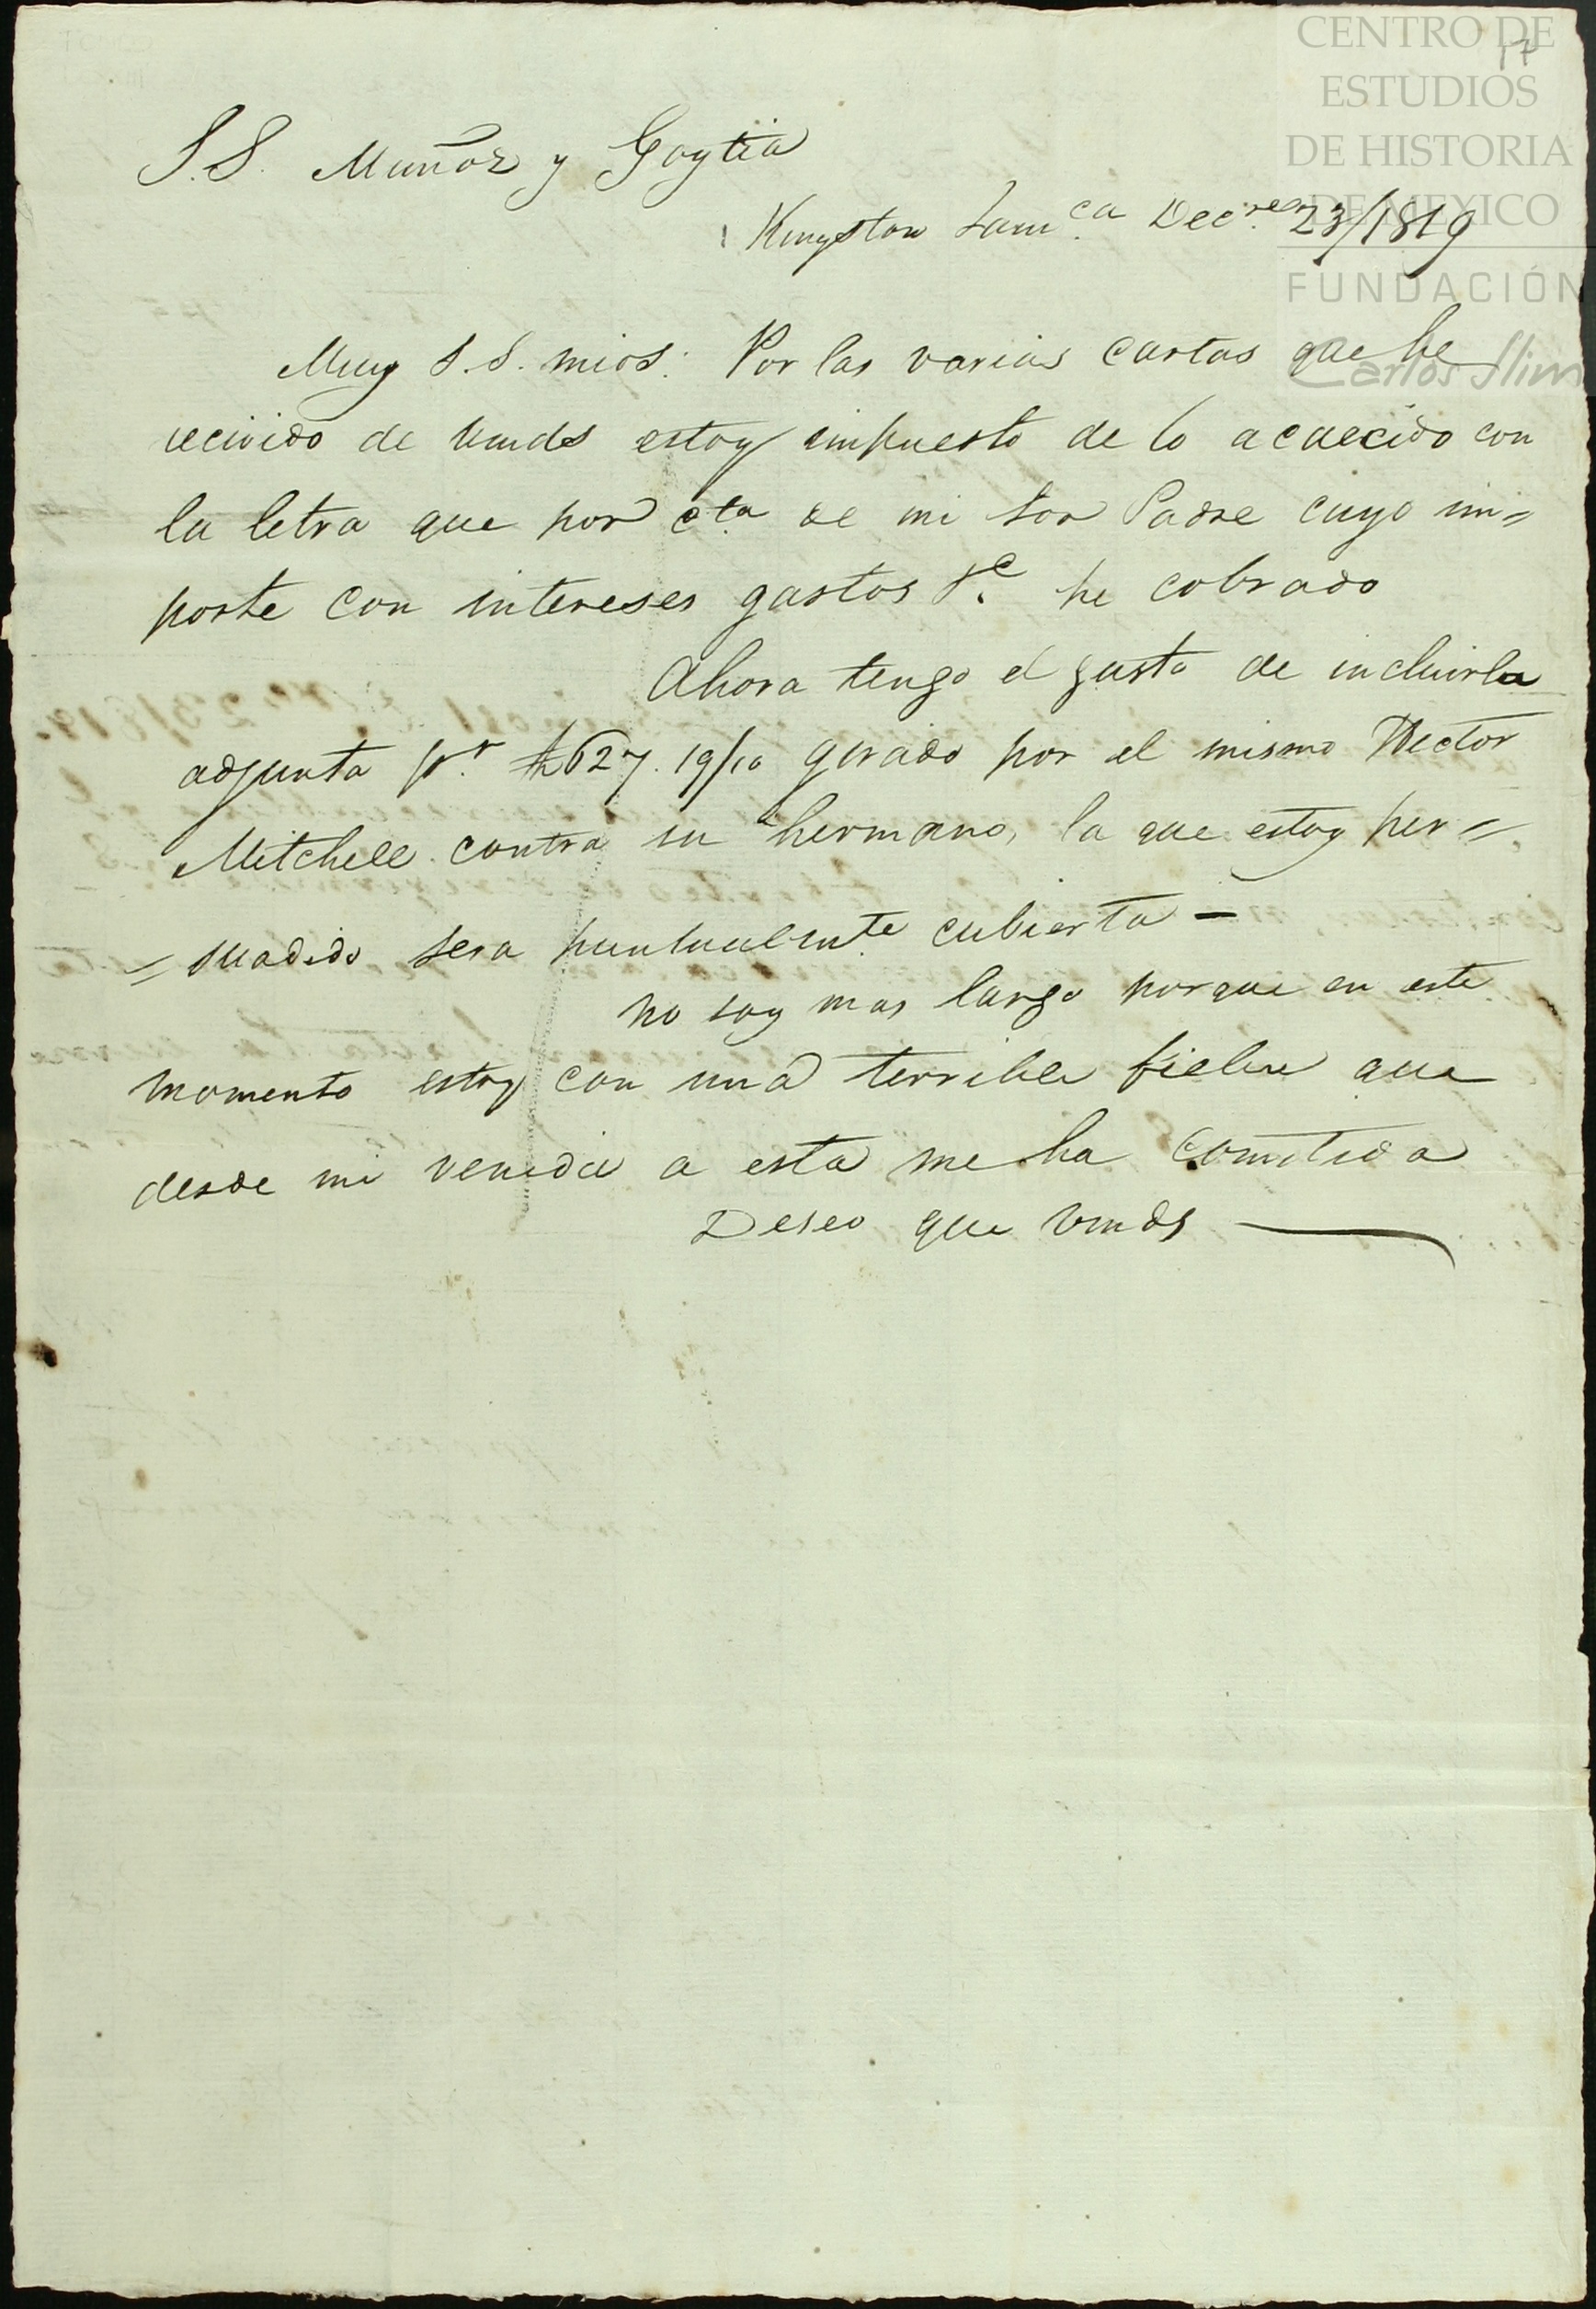 CENTRO DE
ESTUDIOS
DE HISTORIA
DE MEXICO
FUNDACIÓN
Carlos Slim
17
S.S. Muñoz y Goytia
Kingston Jam.ca Dec.re 23/1819
Muy S.S. mios: Por las varias cartas que he
recivido de Vmds estoy impuesto de lo acaecido con
la letra que por cta. de mi Sor Padre cuyo im=
porte con intereses gastos &c. he cobrado
Ahora tengo el gusto de incluirla
adjunta pr. £627. 19/10 girado por el mismo Hector
Mitchell contra su hermano, la que estoy per=
=suadido sera puntualmte. cubierta -
no soy mas largo porque en este
momento estoy con una terrible fiebre que
desde mi venida a esta me ha cometida
Deseo que Vmds